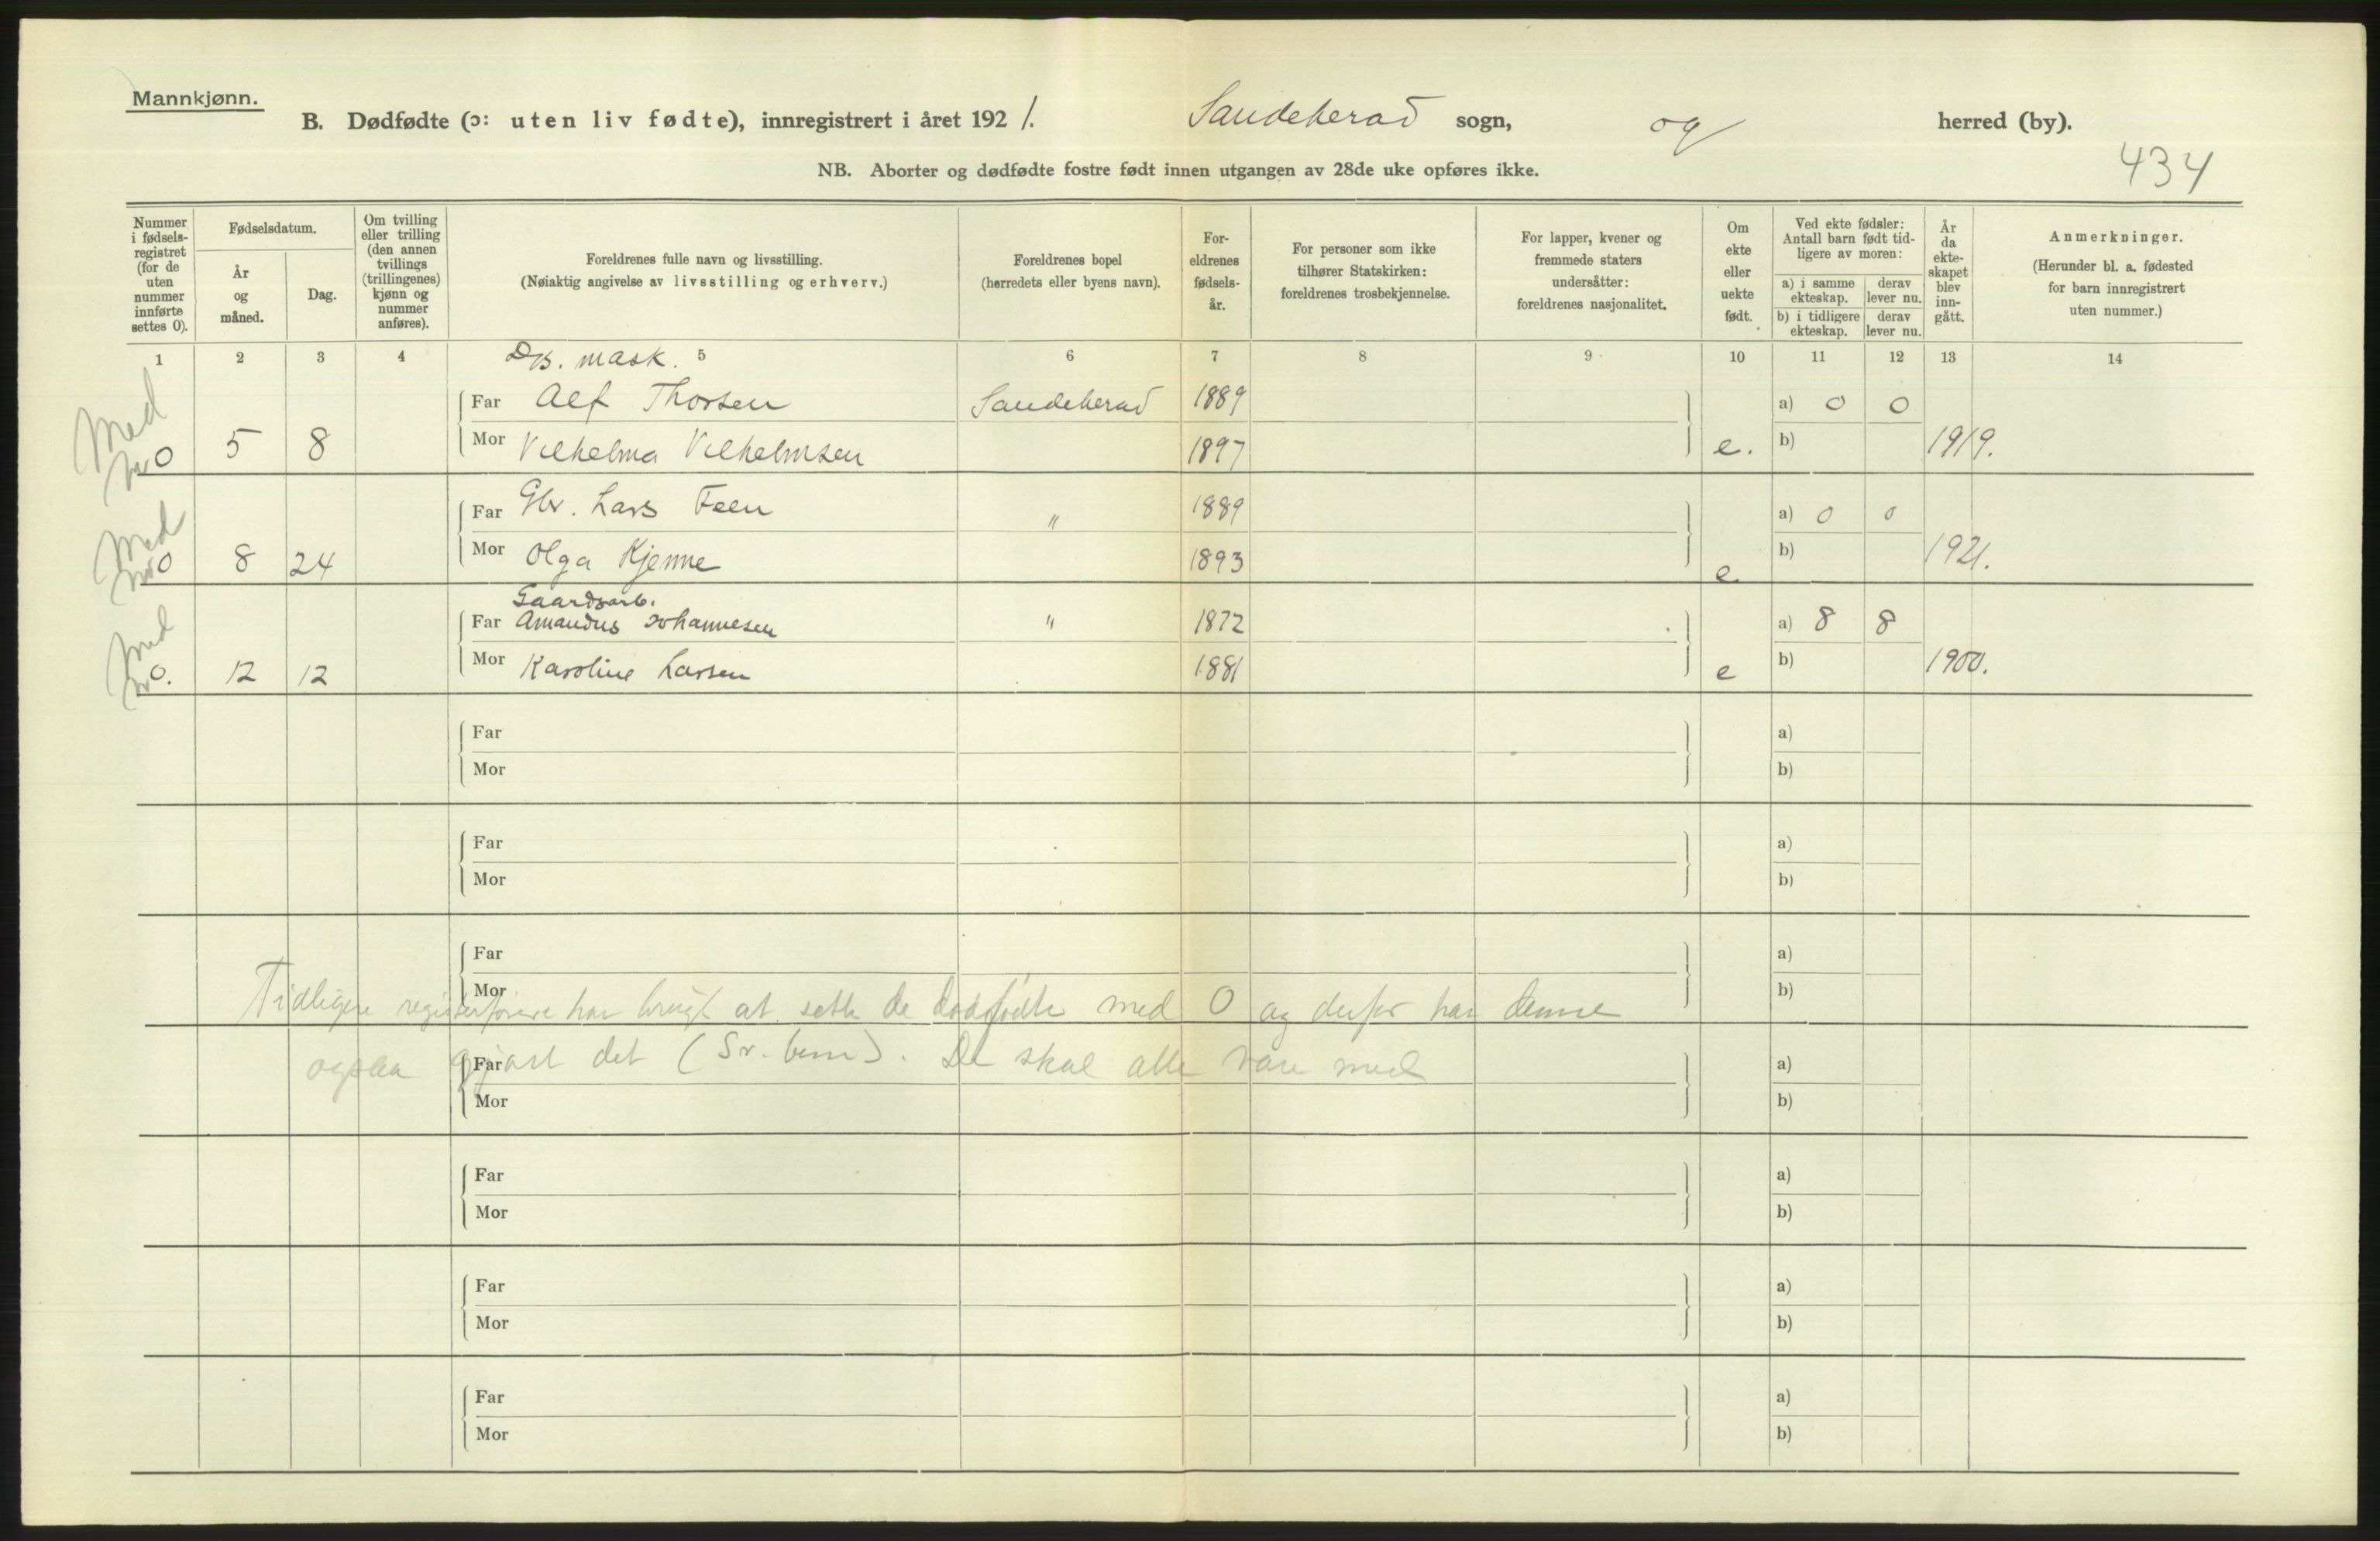 Mannkjønn.
B. Dødfødte (ɔ: uten liv fødte), innregistrert i året 1921. Sandeherad sogn, og herred (by).
434
NB. Aborter og dødfødte fostre født innen utgangen av 28de uke opføres ikke.
Nummer i fødsels-registret (for de uten nummer innførte settes 0).
Fødselsdatum.
År og måned.
Dag.
Om tvilling eller trilling (den annen tvillings (trillingenes) kjønn og nummer anføres).
Foreldrenes fulle navn og livsstilling.
(Nøiaktig angivelse av livsstilling og erhverv.)
Foreldrenes bopel
(herredets eller byens navn).
For-eldrenes fødsels-år.
For personer som ikke tilhører Statskirken: foreldrenes trosbekjennelse.
For lapper, kvener og fremmede staters undersåtter: foreldrenes nasjonalitet.
Om ekte eller uekte født.
Ved ekte fødsler: Antall barn født tid-ligere av moren:
a) i samme ekteskap.
derav lever nu.
b) i tidligere ekteskap.
derav lever nu.
År da ekte-skapet blev inn-gått.
Anmerkninger.
(Herunder bl. a. fødested for barn innregistrert uten nummer.)
1 2 3 4 5 6 7 8 9 10 11 12 13 14
mask.
Med
Far Alf Thorsen Sandeherad 1889 a) 0 0
0 5 8 Mor Vilhelma Vilhelmsen 1897 e. b) 1919.
Med
Far Gbr. Lars Feen " 1889 a) 0 0
0 8 24 Mor Olga Kjenne 1893 e b) 1921.
Gaardsarb.
Med
Far Amandus Johannesen " 1872 a) 8 8
0. 12 12 Mor Karoline Larsen 1881 e b) 1900.
Far a)
Mor b)
Far a)
Mor b)
Far a)
Mor b)
Tidligere registerførere har brugt at sette de dødfødte med 0 og derfor har denne
Far a)
ogsaa gjort det (Sv. bem). De skal alle være med
Mor b)
Far a)
Mor b)
Far a)
Mor b)
Far a)
Mor b)